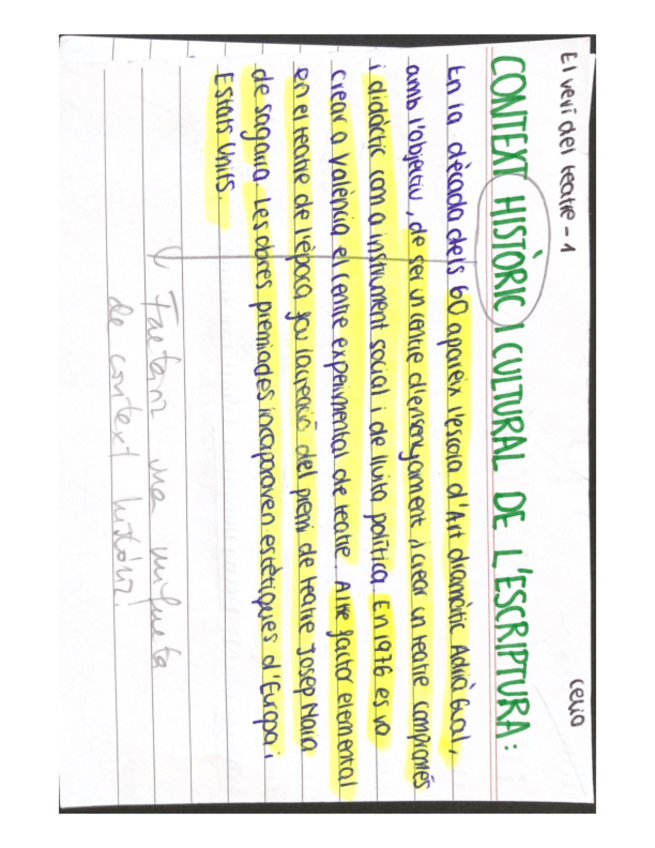 El verí del teatre - 1
Celia
CONTEXT HISTÒRIC I CULTURAL DE L'ESCRIPTURA:
En la dècada dels 60 apareix l'escola d'Art dramàtic Adrià Gual,
amb l'objectiu, de ser un centre d'ensenyament i crear un teatre compromés
i didàctic com a instrument social i de lluita política. En 1976 es va
crear a València el centre experimental de teatre. Altre factor elemental
en el teatre de l'època fou la creació del premi de teatre Josep Maria
de sagarra. Les obres premiades incorporaven estètiques d'Europa i
Estats Units.
Faltaria una miqueta
de context històric!